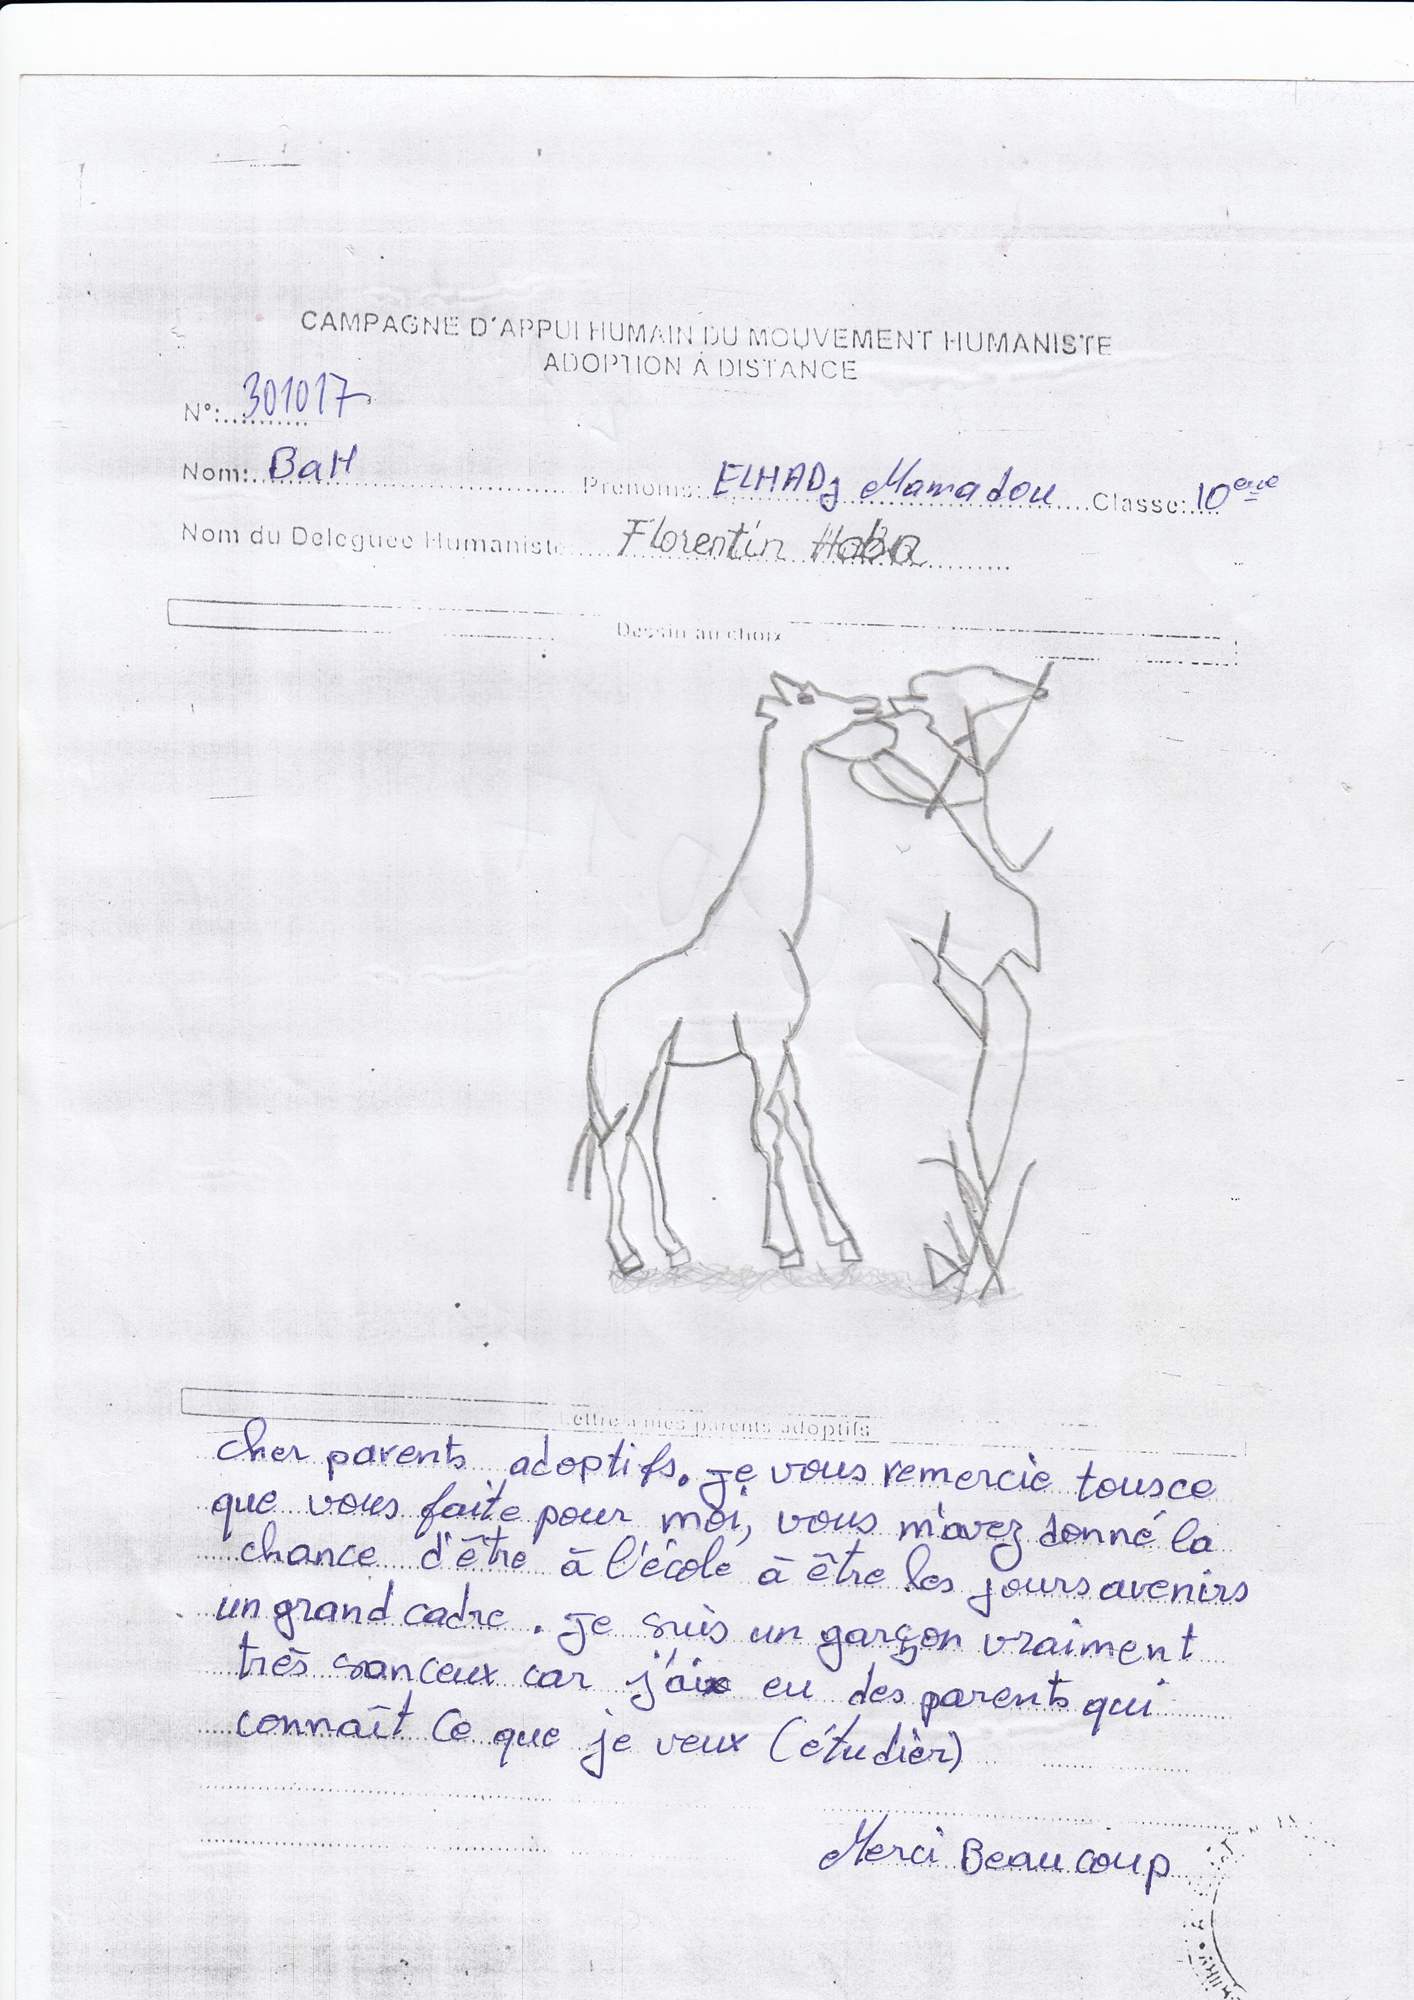 CAMPAGNE D'APPUI HUMAIN DU MOUVEMENT HUMANISTE
ADOPTION À DISTANCE
N°: 301017
Nom: BaH Prénoms: ELHADJ Mamadou Classe: 10ème
Nom du Déléguée Humaniste Florentin HaBa
Dessin au choix
Lettre à mes parents adoptifs
cher parents adoptifs. je vous remercie tousce
que vous faite pour moi, vous m'avez donné la
chance d'être à l'école à être les jours avenirs
un grand cadre. je suis un garçon vraiment
très sanceux car j'aix eu des parents qui
connaît ce que je veux (étudier)
Merci Beaucoup